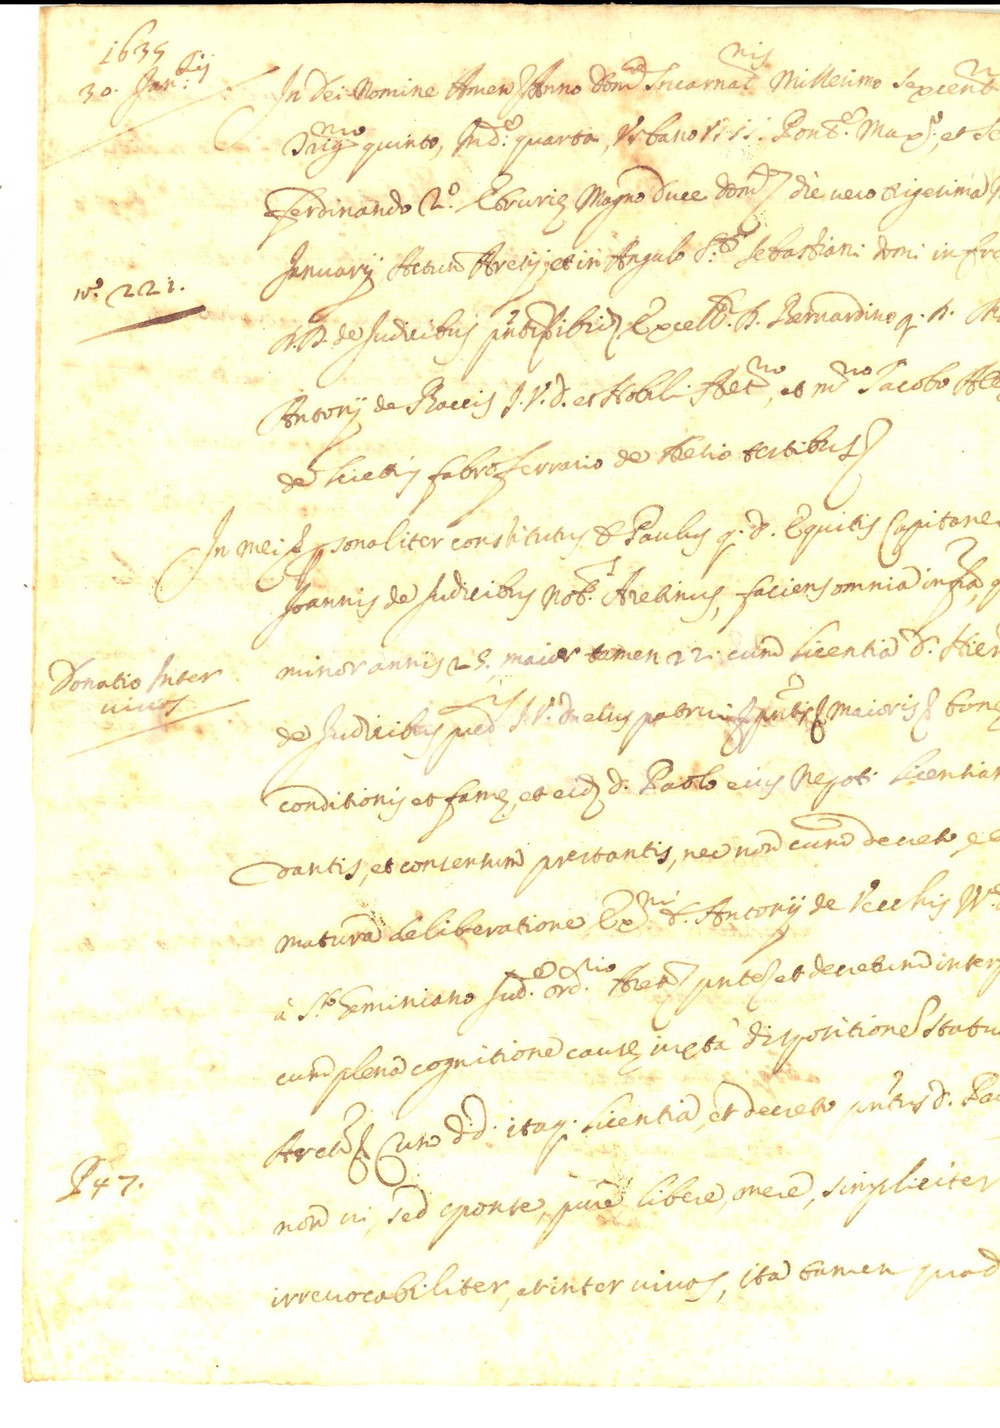 1635
30. Jan.rij
In Dei Nomine Amen Anno Dom. Incarnat.nis Millesimo Sexcent
Trig.mo quinto, Ind.e quarta, Urbano VIII. Pont.e Max.o, et Se
Ferdinando 2.o Etrurie Magno Duce Dom. die vero trigesima
Januarij Actum Aretij, et in Angulo S.ti Sebastiani domi infra
No. 221.
D.D. de Judicibus Excell. D. Bernardino q. D.
Antonij de Baccis J.V.D. et Nobili Aret.no, et m.ro Jacobo
de fabro ferrario de Aretio testibus
In mei personaliter constitutus D. Paulus q. D. Equitis Capitanei
Joannis de Judicibus Nob. Aretinus, faciens omnia infra, q
minor annis 25, maior tamen 22. cum licentia D. Hier
Donatio Inter
vivos
de Judicibus pred. J.V.D. eius patrui maioris bone
conditionis et fame, et eid. D. Paolo eius Nepoti licentiam
dantis, et consensum prestantis, nec non cum decreto, et
matura deliberatione Ex.mi D. Antonij de Vecchis
à S.to Geminiano Jud.e ord.rio Aret. et decretum interp
cum plena cognitione cause iuxta dispositione Statu
Aret. Cum d.d. itaq. licentia, et decreto D. Pau
P 47.
non vi, sed sponte, pure libere, mere, simpliciter
irrevocabiliter, et inter vivos, ita tamen quod